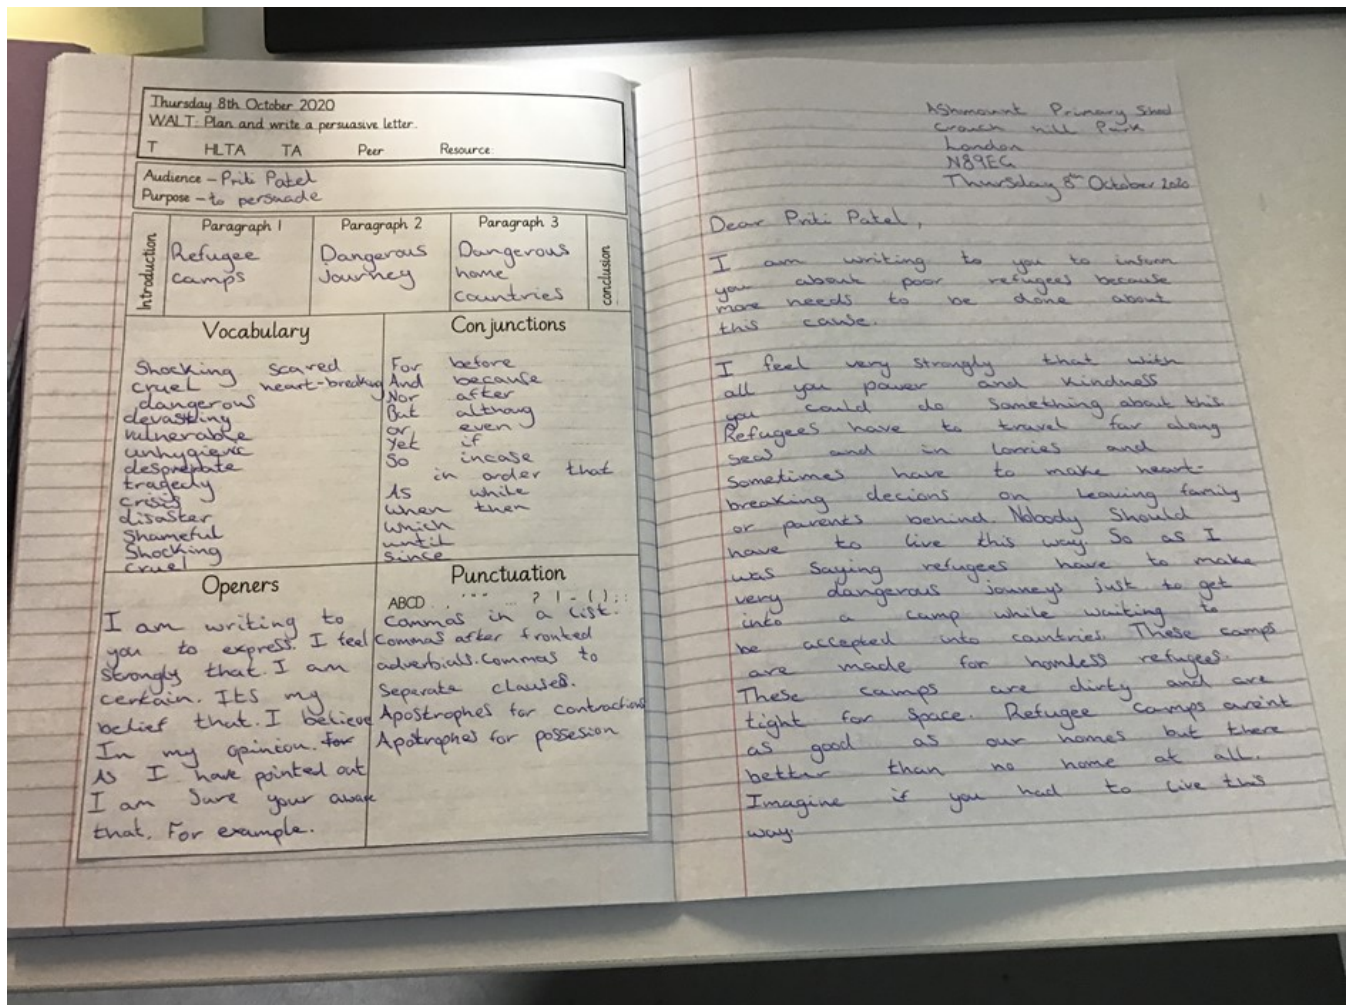 Thursday 8th October 2020
WALT: Plan and write a persuasive letter.
T HLTA TA Peer Resource:
Audience - Priti Patel
Purpose - to persuade
Introduction
Paragraph 1
Refugee
camps
Paragraph 2
Dangerous
journey
Paragraph 3
Dangerous
home
countries
conclusion
Vocabulary
Shocking scared
cruel heart-breaking
dangerous
devasting
vulnerable
unhygienic
despreate
tragedy
crisis
disaster
Shameful
Shocking
cruel
Conjunctions
For before
And because
Nor after
But althoug
or even
Yet if
So incase
in order that
As while
when then
which
until
since
Openers
I am writing to
you to express. I feel
strongly that. I am
certain. Its my
belief that. I believe
In my opinion. for
As I have pointed out
I am Sure your aware
that. For example.
Punctuation
ABCD . , ' " " ... ? ! - ( ) ; :
Commas in a list.
Commas after fronted
adverbials. Commas to
Seperate clauses.
Apostrophes for contractions
Apotrophes for possesion
Ashmount Primary School
Crouch hill Park
London
N89EG
Thursday 8th October 2020
Dear Priti Patel,
I am writing to you to inform
you about poor refugees because
more needs to be done about
this cause.
I feel very strongly that with
all you power and kindness
you could do something about this
Refugees have to travel far along
seas and in lorries and
Sometimes have to make heart-
breaking decions on leaving family
or parents behind. Nobody Should
have to live this way. So as I
was Saying refugees have to make
very dangerous journeys just to get
into a camp while waiting to
be accepted into countries. These camps
are made for homless refugees.
These camps are dirty and are
tight for space. Refugee camps arent
as good as our homes but there
better than no home at all.
Imagine if you had to live this
way.